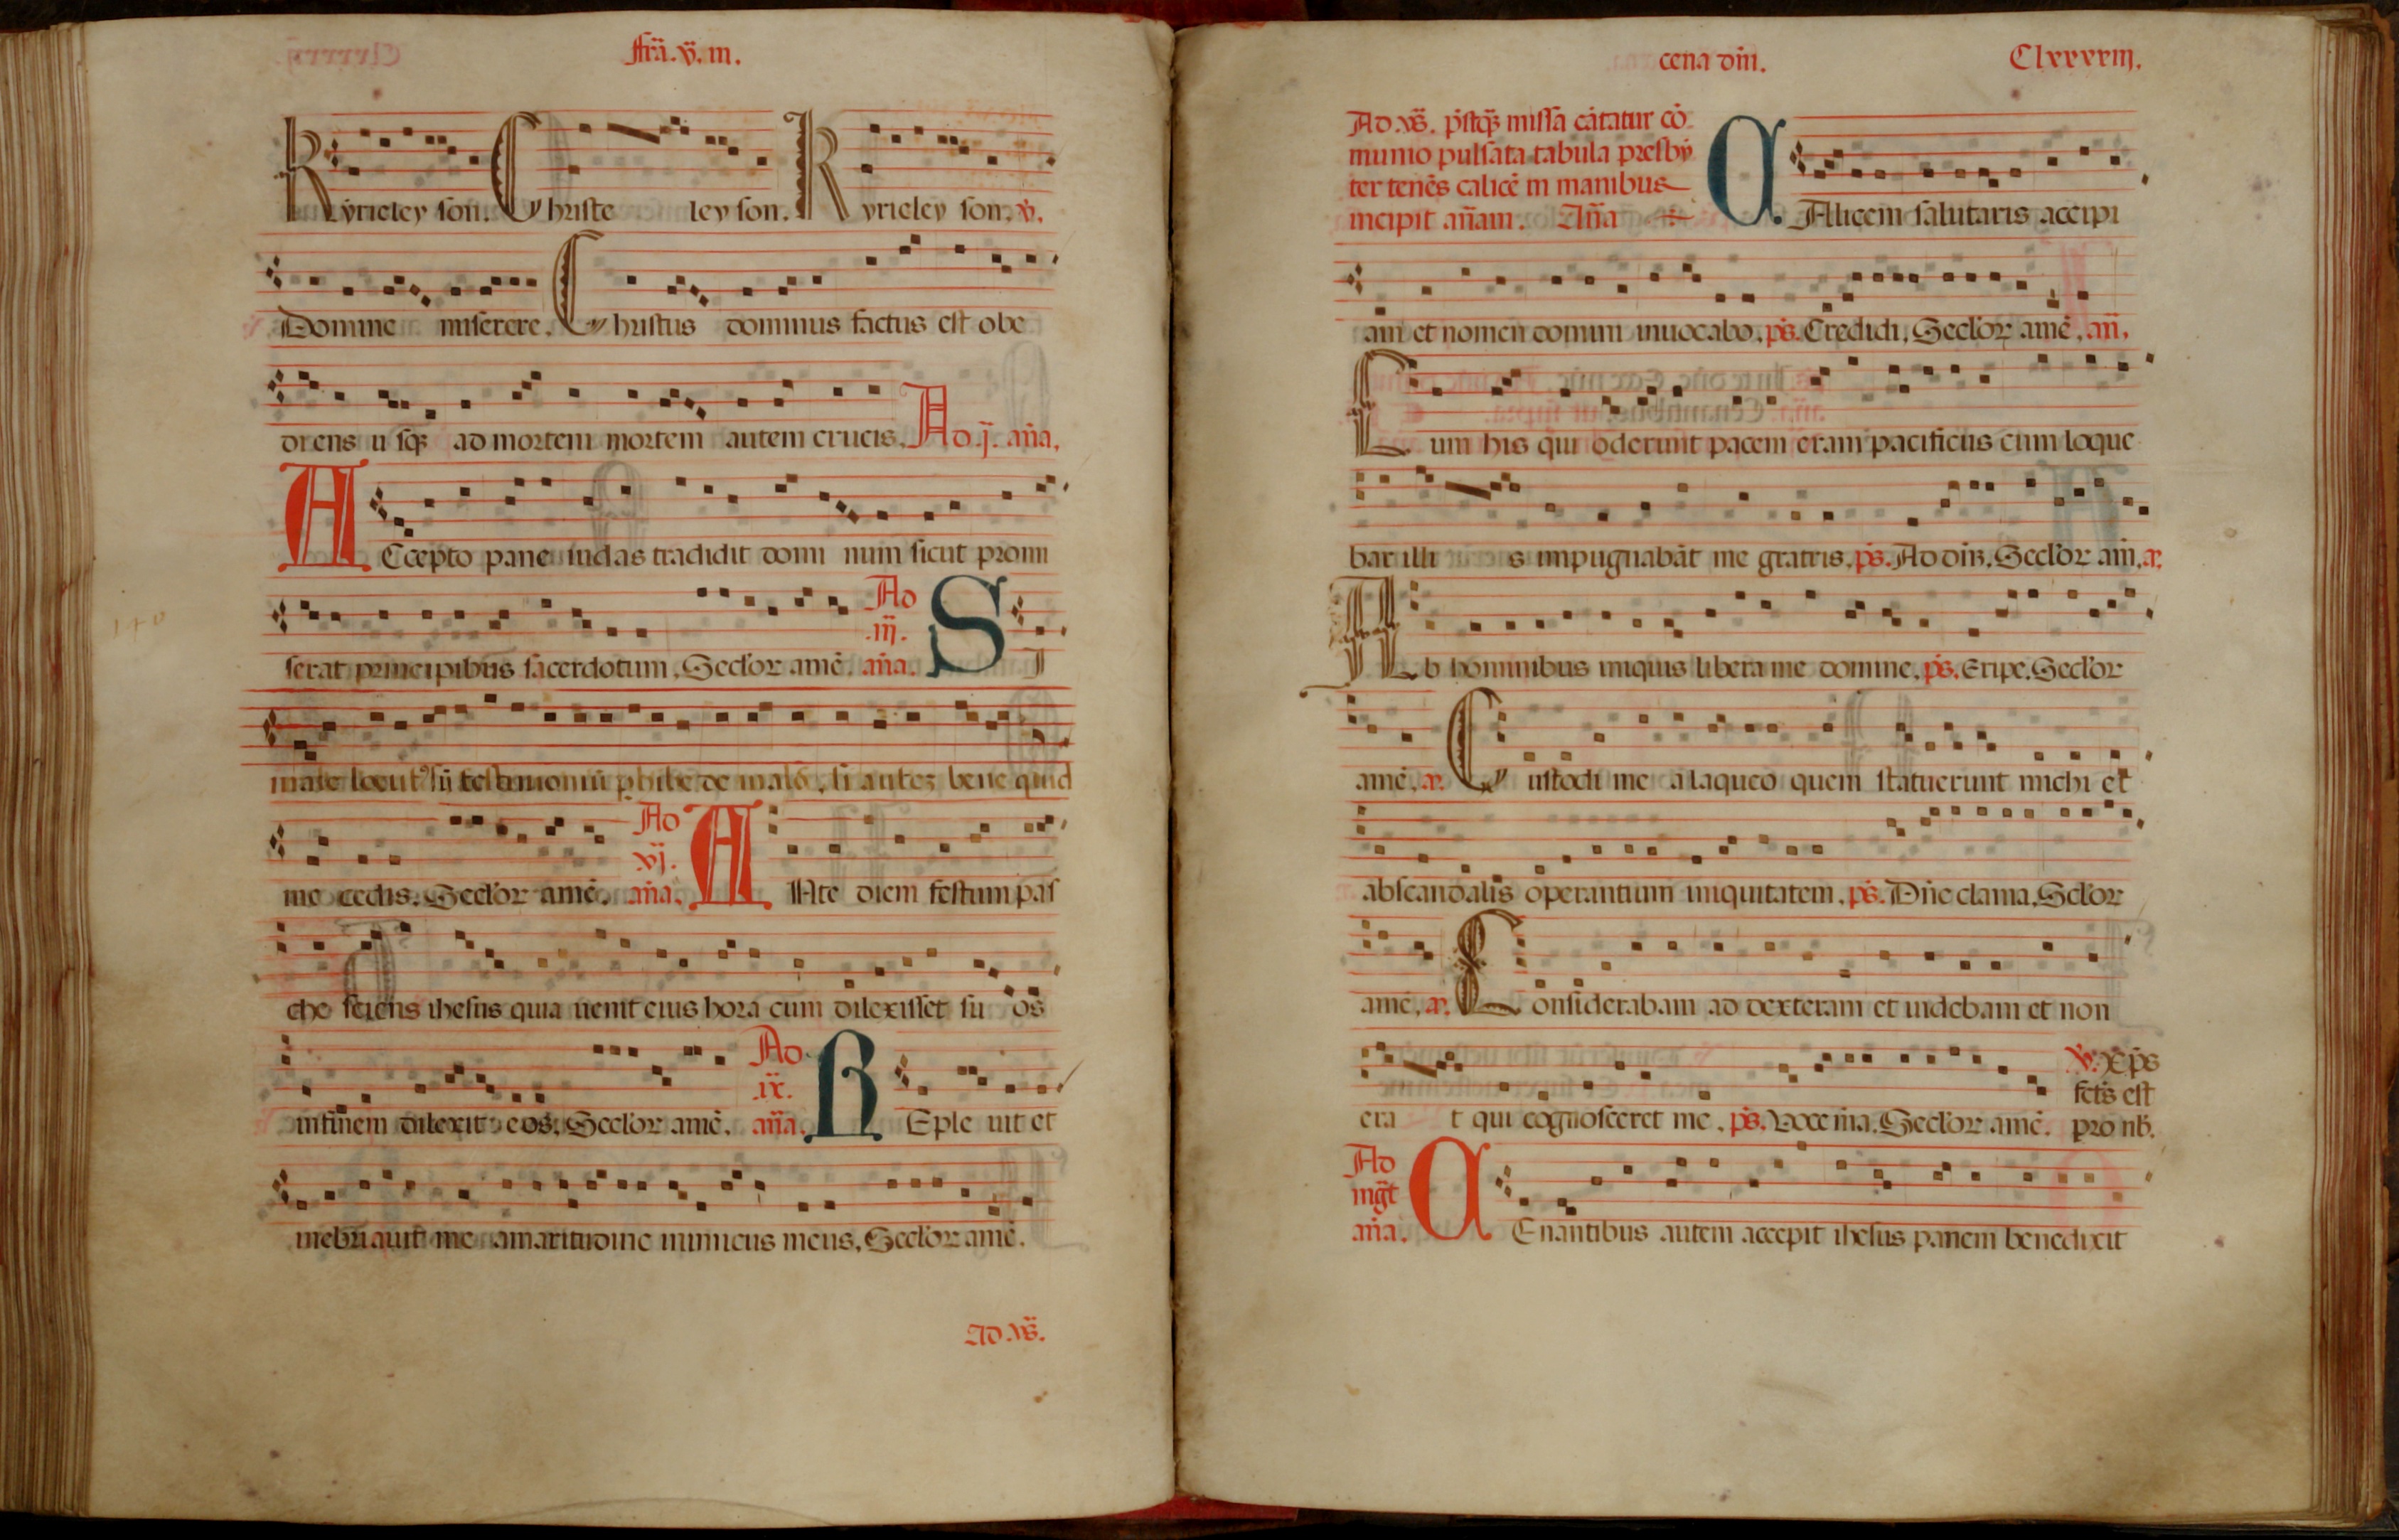 fr̃a. v̄. in.
Kyrieley son. Christe ley son. Kyrieley son. ℣.
Domine miserere. Christus dominus factus est obe
diens usq; ad mortem mortem autem crucis. Ad .j. an̄a.
ACcepto pane iudas tradidit domi num sicut promi
serat principibus sacerdotum. Seclor amē. Ad .iij. an̄a. SI
male locut' sū testimoniū phibe de malo. si autez bene quid
me cedis. Seclor amē. Ad .vj. an̄a. ANte diem festum pas
che sciens ihesus quia uenit eius hora cum dilexisset su os
infinem dilexit eos. Seclor amē. Ad .ix. an̄a. REple uit et
inebriauit me amaritudine inimicus meus. Seclor amē.
Ad .vs̄.
cena dn̄i. Clxxxxiij.
Ad .vs̄. p̄stq̄; missa cātatur cō
munio pulsata tabula presby
ter tenēs calicē in manibus
incipit an̄am. An̄a
CAlicem salutaris accipi
am et nomen domini inuocabo. ps̄. Credidi. Seclor amē. an̄.
Cum his qui oderunt pacem eram pacificus cum loque
bar illi s impugnabāt me gratris. ps̄. Ad dn̄z. Seclor am̄. a.
Ab hominibus iniquis libera me domine. ps̄. Eripe. Seclor
amē. a. Custodi me a laqueo quem statuerunt michi et
abscandalis operantium iniquitatem. ps̄. Dn̄e clama. Sclor
amē. a. Considerabam ad dexteram et uidebam et non
era t qui cognosceret me. ps̄. Voce m̄a. Seclor amē. ℣. Xp̄s
fct̄s est
pro nb̄.
Ad
mgt̄
an̄a. CEnantibus autem accepit ihesus panem benedixit